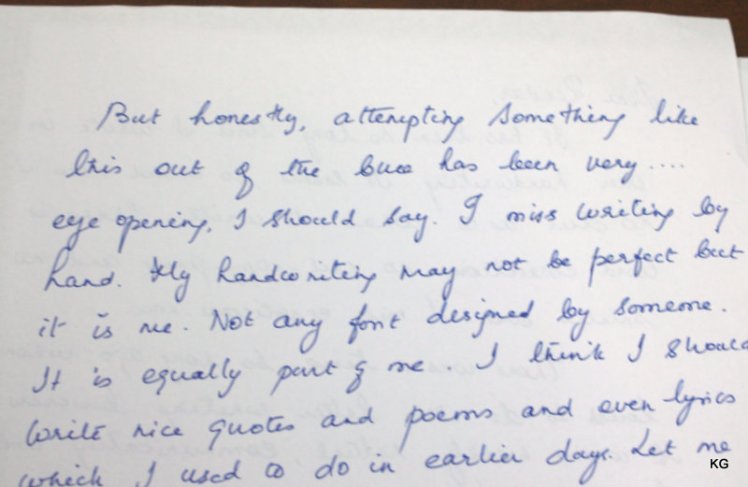 But honestly, attempting something like
this out of the blue has been very ....
eye opening, I should say. I miss writing by
hand. My handwriting may not be perfect but
it is me. Not any font designed by someone.
It is equally part of me. I think I should
write nice quotes and poems and even lyrics
which I used to do in earlier days. Let me
KG